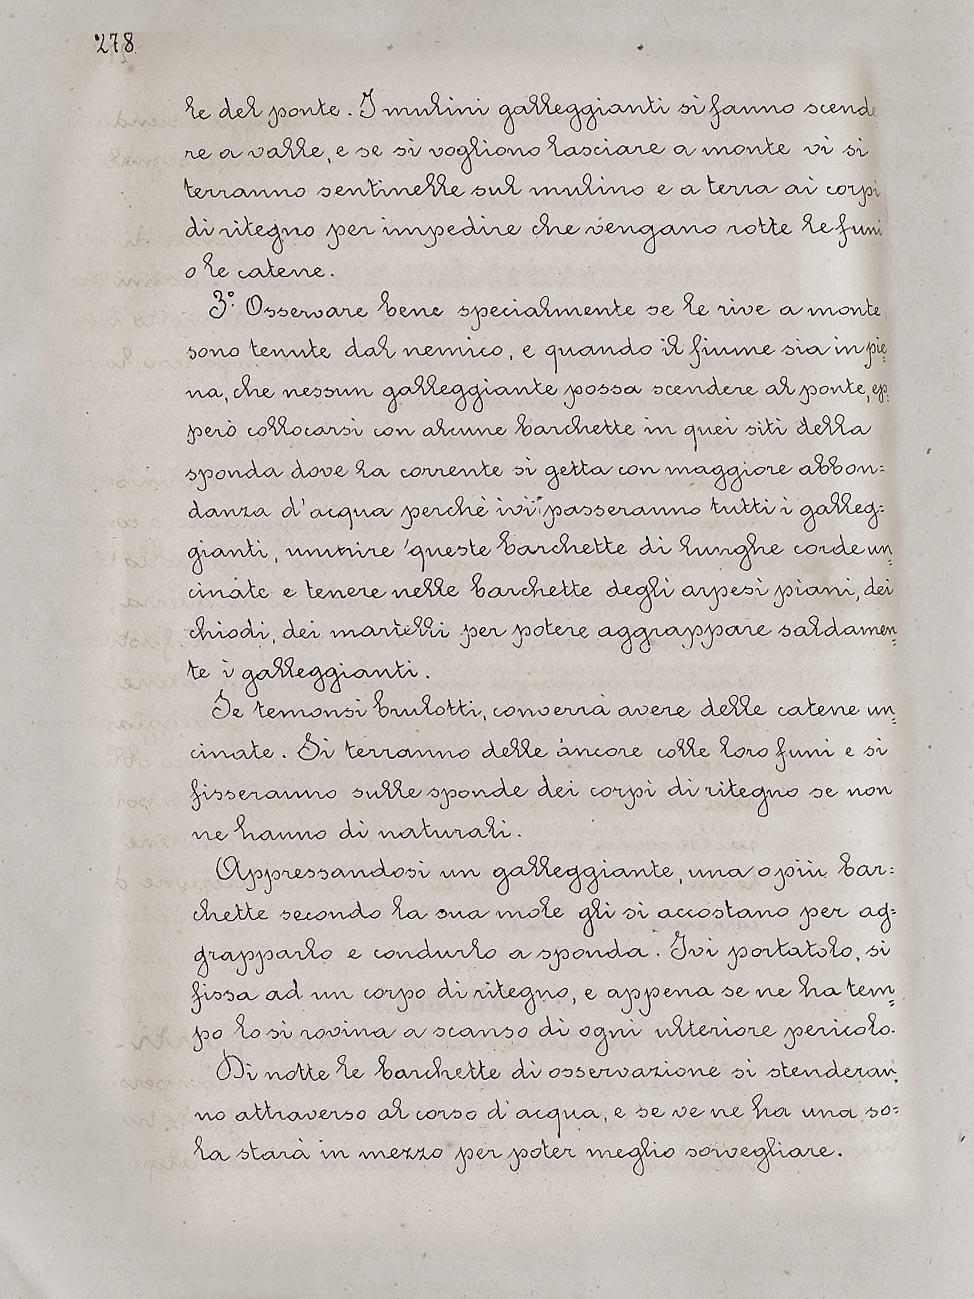 278
le del ponte. I mulini galleggianti si fanno scende
re a valle, e se si vogliono lasciare a monte vi si
terranno sentinelle sul mulino e a terra ai corpi
di ritegno per impedire che vengano rotte le funi
o le catene.
3° Osservare bene specialmente se le rive a monte
sono tenute dal nemico, e quando il fiume sia in pie
na, che nessun galleggiante possa scendere al ponte, ep
però collocarsi con alcune barchette in quei siti della
sponda dove la corrente si getta con maggiore abbon=
danza d'acqua perchè ivi passeranno tutti i galleg=
gianti, munire queste barchette di lunghe corde un=
cinate e tenere nelle barchette degli arpesi piani, dei
chiodi, dei martelli per potere aggrappare saldamen=
te i galleggianti.
Se temonsi brulotti, converrà avere delle catene un=
cinate. Si terranno delle àncore colle loro funi e si
fisseranno sulle sponde dei corpi di ritegno se non
ne hanno di naturali.
Appressandosi un galleggiante, una o più bar=
chette secondo la sua mole gli si accostano per ag=
grapparlo e condurlo a sponda. Ivi portatolo, si
fissa ad un corpo di ritegno, e appena se ne ha tem=
po lo si rovina a scanso di ogni ulteriore pericolo.
Di notte le barchette di osservazione si stenderan
no attraverso al corso d'acqua, e se ve ne ha una so=
la starà in mezzo per poter meglio sorvegliare.